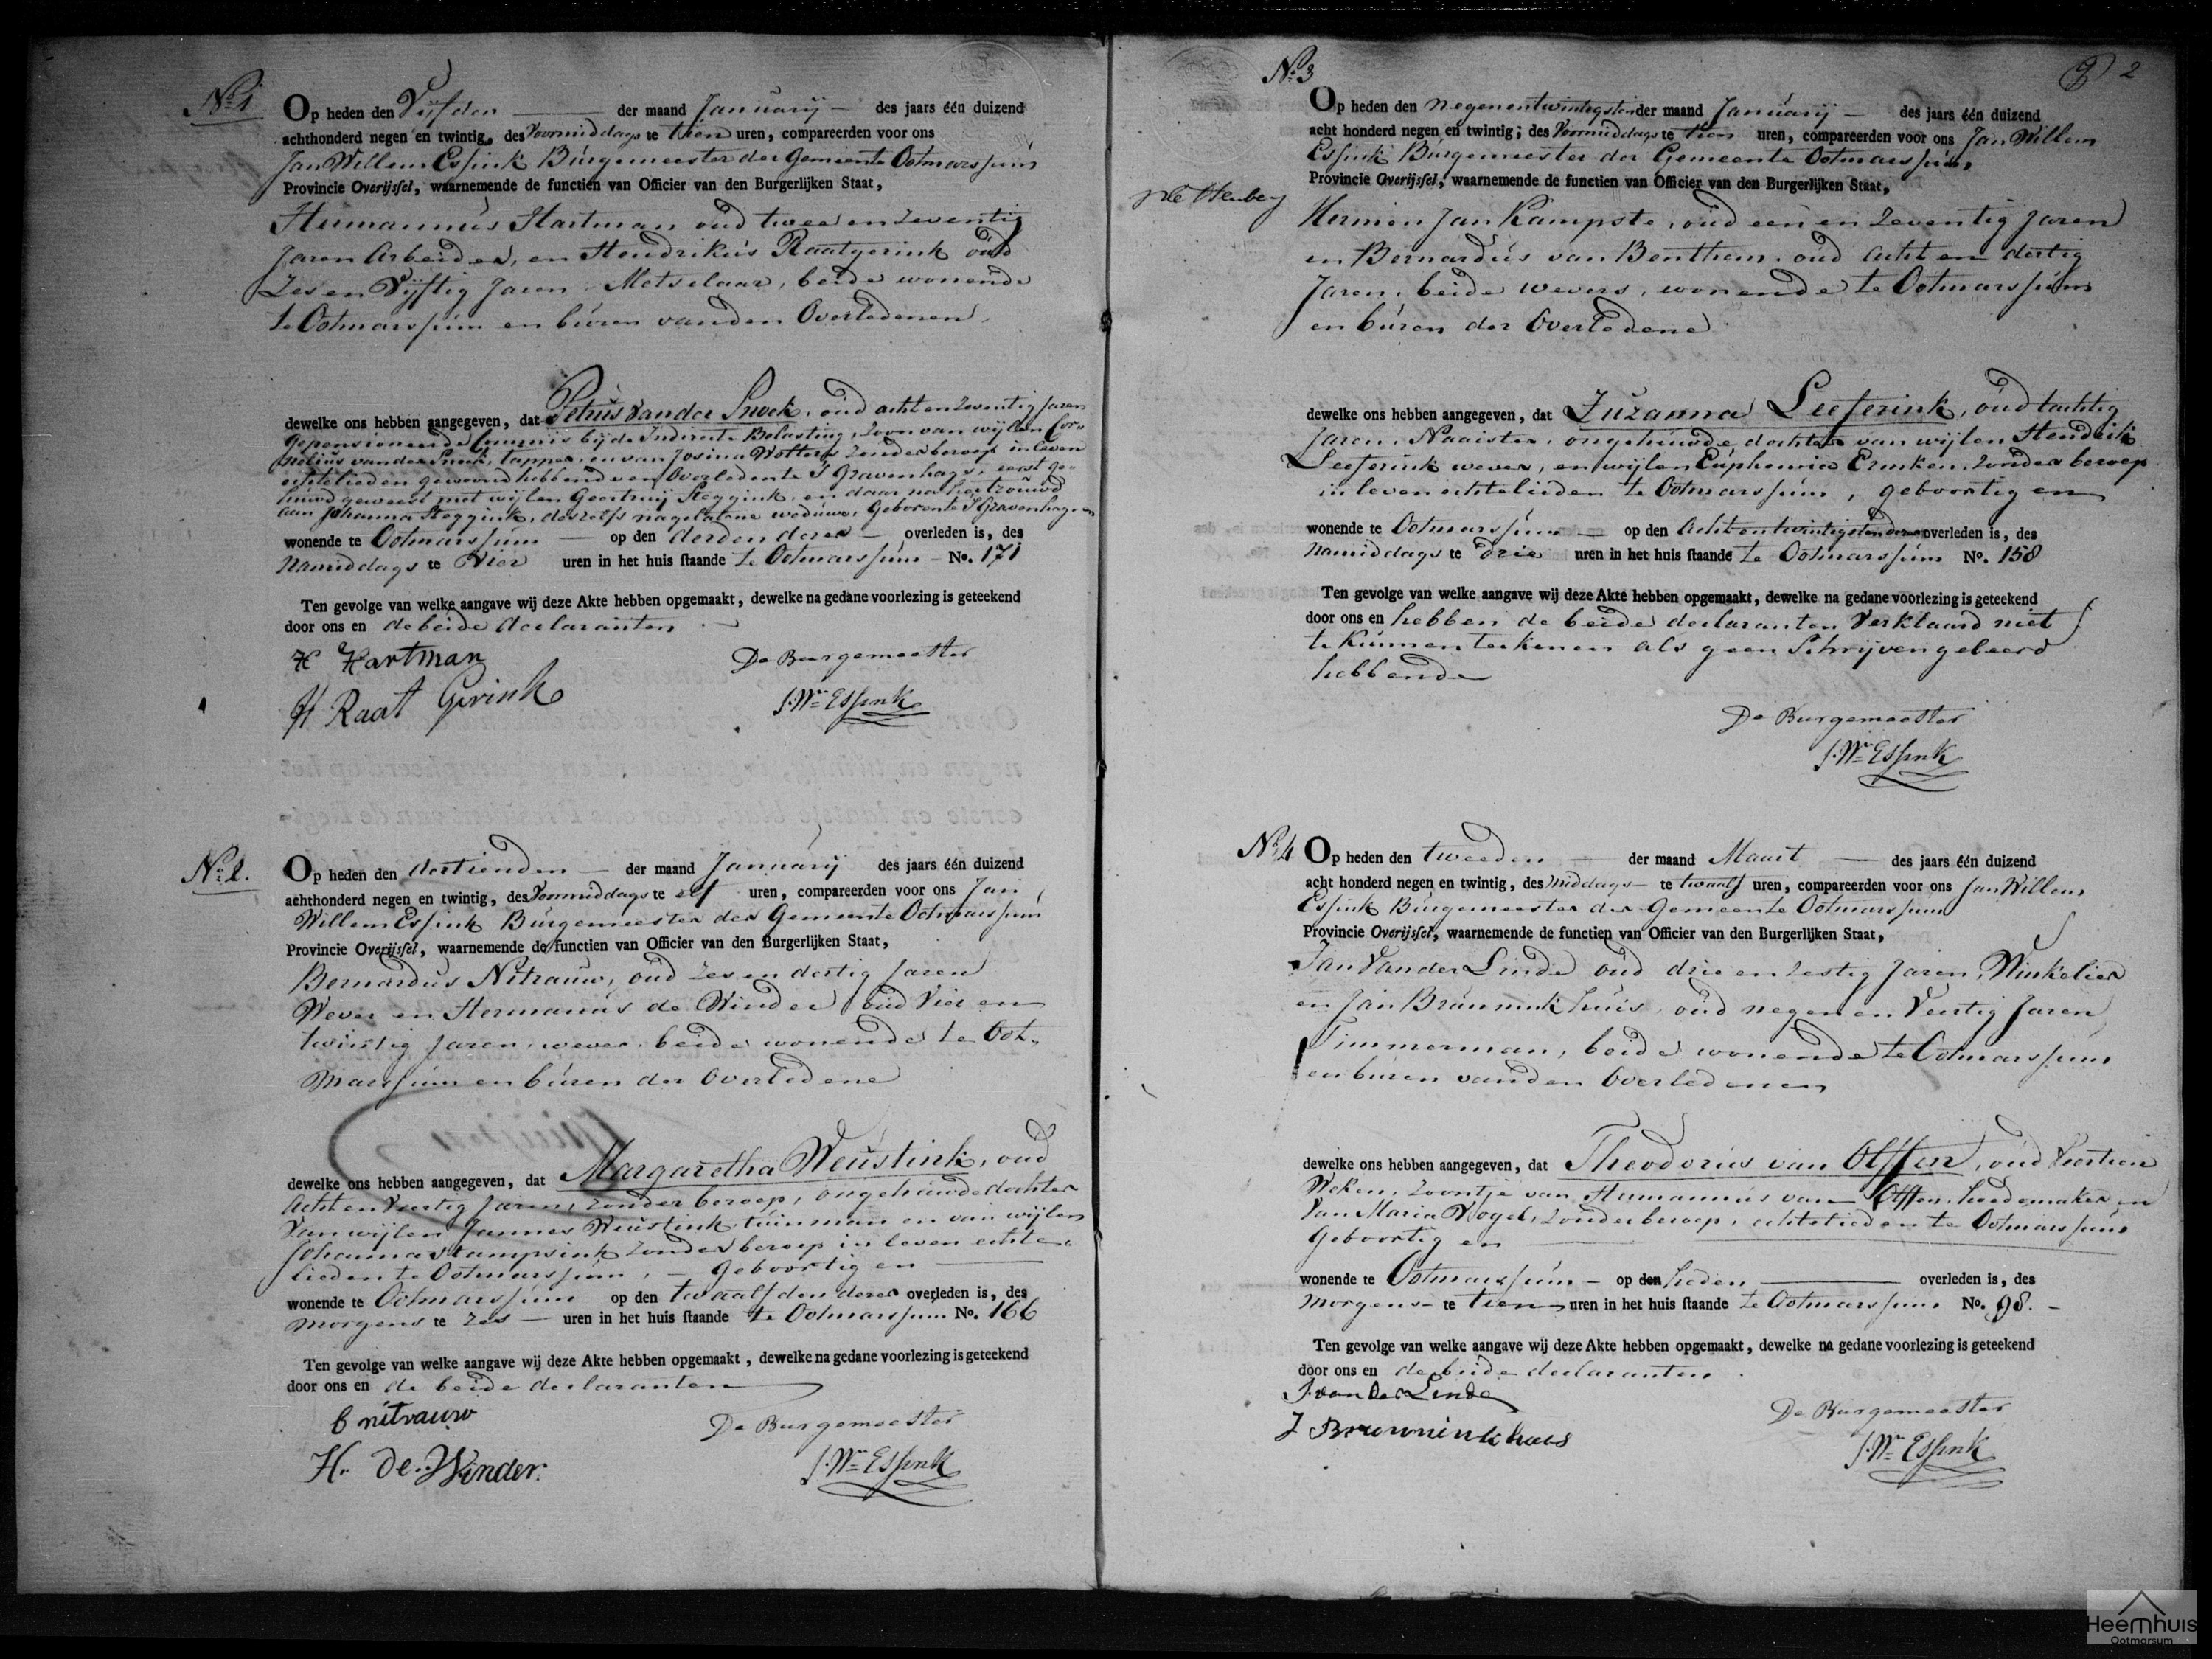 No 1
Op heden den Vijfden der maand Januarij des jaars één duizend
achthonderd negen en twintig, des Voormiddags te tien uren, compareerden voor ons
Jan Willem Essink Burgemeester der Gemeente Ootmarssum
Provincie Overijssel, waarnemende de functien van Officier van den Burgerlijken Staat,
Hermannus Hartman oud twee en zeventig
Jaren Arbeider, en Hendrikus Raatgerink oud
Zes en Vijftig Jaren Metselaar, beide wonende
te Ootmarssum en buren van den Overledenen
dewelke ons hebben aangegeven, dat Petrus van der Snoek, oud acht en zeventig Jaren
Gepensioneerde Commis bij de Indirecte Belasting, Zoon van wijlen Cor-
nelius van der Snoek, tapper, en van Josina Wolters zonder beroep in leven
echtelieden gewoond hebbend en Overleden te S Gravenhage, eerst ge-
huwd geweest met wijlen Geertruij Steggink, en daar na hertrouwd
aan Johanna Steggink, deszelfs nagelatene weduwe, Geboren te S Gravenhage en
wonende te Ootmarssum op den derden dezer overleden is, des
Namiddags te Vier uren in het huis staande te Ootmarssum No. 171
Ten gevolge van welke aangave wij deze Akte hebben opgemaakt, dewelke na gedane voorlezing is geteekend
door ons en de beide declaranten
H Hartman
De Burgemeester
H Raat Gerink
J. Wm Essink
No 2.
Op heden den dertienden der maand Januarij des jaars één duizend
achthonderd negen en twintig, des Voormiddags te elf uren, compareerden voor ons Jan
Willem Essink Burgemeester der Gemeente Ootmarssum
Provincie Overijssel, waarnemende de functien van Officier van den Burgerlijken Staat,
Bernardus Nitrauw, oud zes en dertig Jaren
Wever en Hermannus de Winder oud Vier en
twintig Jaren, wever, beide wonende te Oot-
marssum en buren der Overledene
dewelke ons hebben aangegeven, dat Margaretha Weustink, oud
Acht en Veertig Jaren, Zonder beroep, ongehuwde dochter
Van wijlen Jannes Weustink tuinman en van wijlen
Johanna Kampsink zonder beroep in leven echte-
lieden te Ootmarssum, Geboortig en
wonende te Ootmarssum op den twaalfden dezer overleden is, des
morgens te zes uren in het huis staande te Ootmarssum No. 166
Ten gevolge van welke aangave wij deze Akte hebben opgemaakt, dewelke na gedane voorlezing is geteekend
door ons en de beide declaranten
B nitrauw
De Burgemeester
H. De. Winder.
J. Wm Essink
2
No 3
Op heden den negenentwintigsten der maand Januarij des jaars één duizend
acht honderd negen en twintig; des Voormiddags te tien uren, compareerden voor ons Jan Willem
Essink Burgemeester der Gemeente Ootmarssum,
Provincie Overijssel, waarnemende de functien van Officier van den Burgerlijken Staat,
Hermen Jan Kampste, oud een en zeventig Jaren
en Bernardus van Benthem oud acht en dertig
Jaren, beide wevers, wonende te Ootmarssum
en buren der Overledene
dewelke ons hebben aangegeven, dat Zuzanna Leeferink, oud tachtig
Jaren, Naaister, ongehuwde dochter van wijlen Hendrik
Leeferink wever, en wijlen Euphemia Ernken, zonder beroep
in leven echtelieden te Ootmarssum, geboortig en
wonende te Ootmarssum op den Acht en twintigsten dezer overleden is, des
Namiddags te drie uren in het huis staande te Ootmarssum No. 158
Ten gevolge van welke aangave wij deze Akte hebben opgemaakt, dewelke na gedane voorlezing is geteekend
door ons en hebben de beide declaranten Verklaard niet
te kunnen teekenen als geen Schrijven geleerd
hebbende
De Burgemeester
J. Wm Essink
No 4
Op heden den tweeden der maand Maart des jaars één duizend
acht honderd negen en twintig, des middags te twaalf uren, compareerden voor ons Jan Willem
Essink Burgemeester der Gemeente Ootmarssum
Provincie Overijssel, waarnemende de functien van Officier van den Burgerlijken Staat,
Jan Van der Linde oud drie en zestig Jaren, Winkelier
en Jan Braunninkhuis, oud negen en Veertig Jaren
Timmerman, beide wonende te Ootmarssum
en buren van den Overledenen
dewelke ons hebben aangegeven, dat Theodorus van Olffen, oud Veertien
Weken, Zoontje van Hermannus van Olffen hoedemaker en
Van Maria Vogel, zonder beroep, echtelieden te Ootmarssum
Geboortig en
wonende te Ootmarssum op den heden overleden is, des
morgens te tien uren in het huis staande te Ootmarssum No. 98.
Ten gevolge van welke aangave wij deze Akte hebben opgemaakt, dewelke na gedane voorlezing is geteekend
door ons en de beide declaranten
J. van der Linde
De Burgemeester
J Brunninkhuis
J. Wm Essink
Heemhuis
Ootmarsum